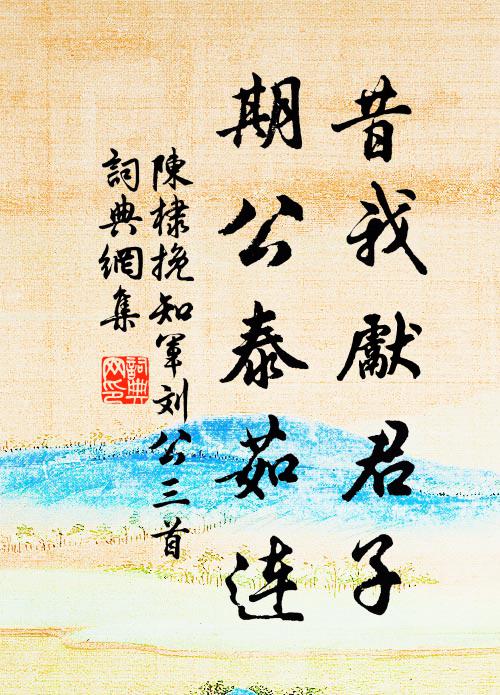 昔我獻君子
期公泰茹連
陳棣挽知軍刘公三首
詞典網集
詞典網印